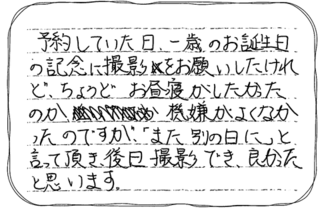 予約していた日、一歳のお誕生日
の記念に撮影をお願いしたけれ
ど、ちょうど お昼寝がしたかった
のか 機嫌がよくなか
ったのですが、「また別の日に」と
言って頂き、後日 撮影でき、良かった
と思います。